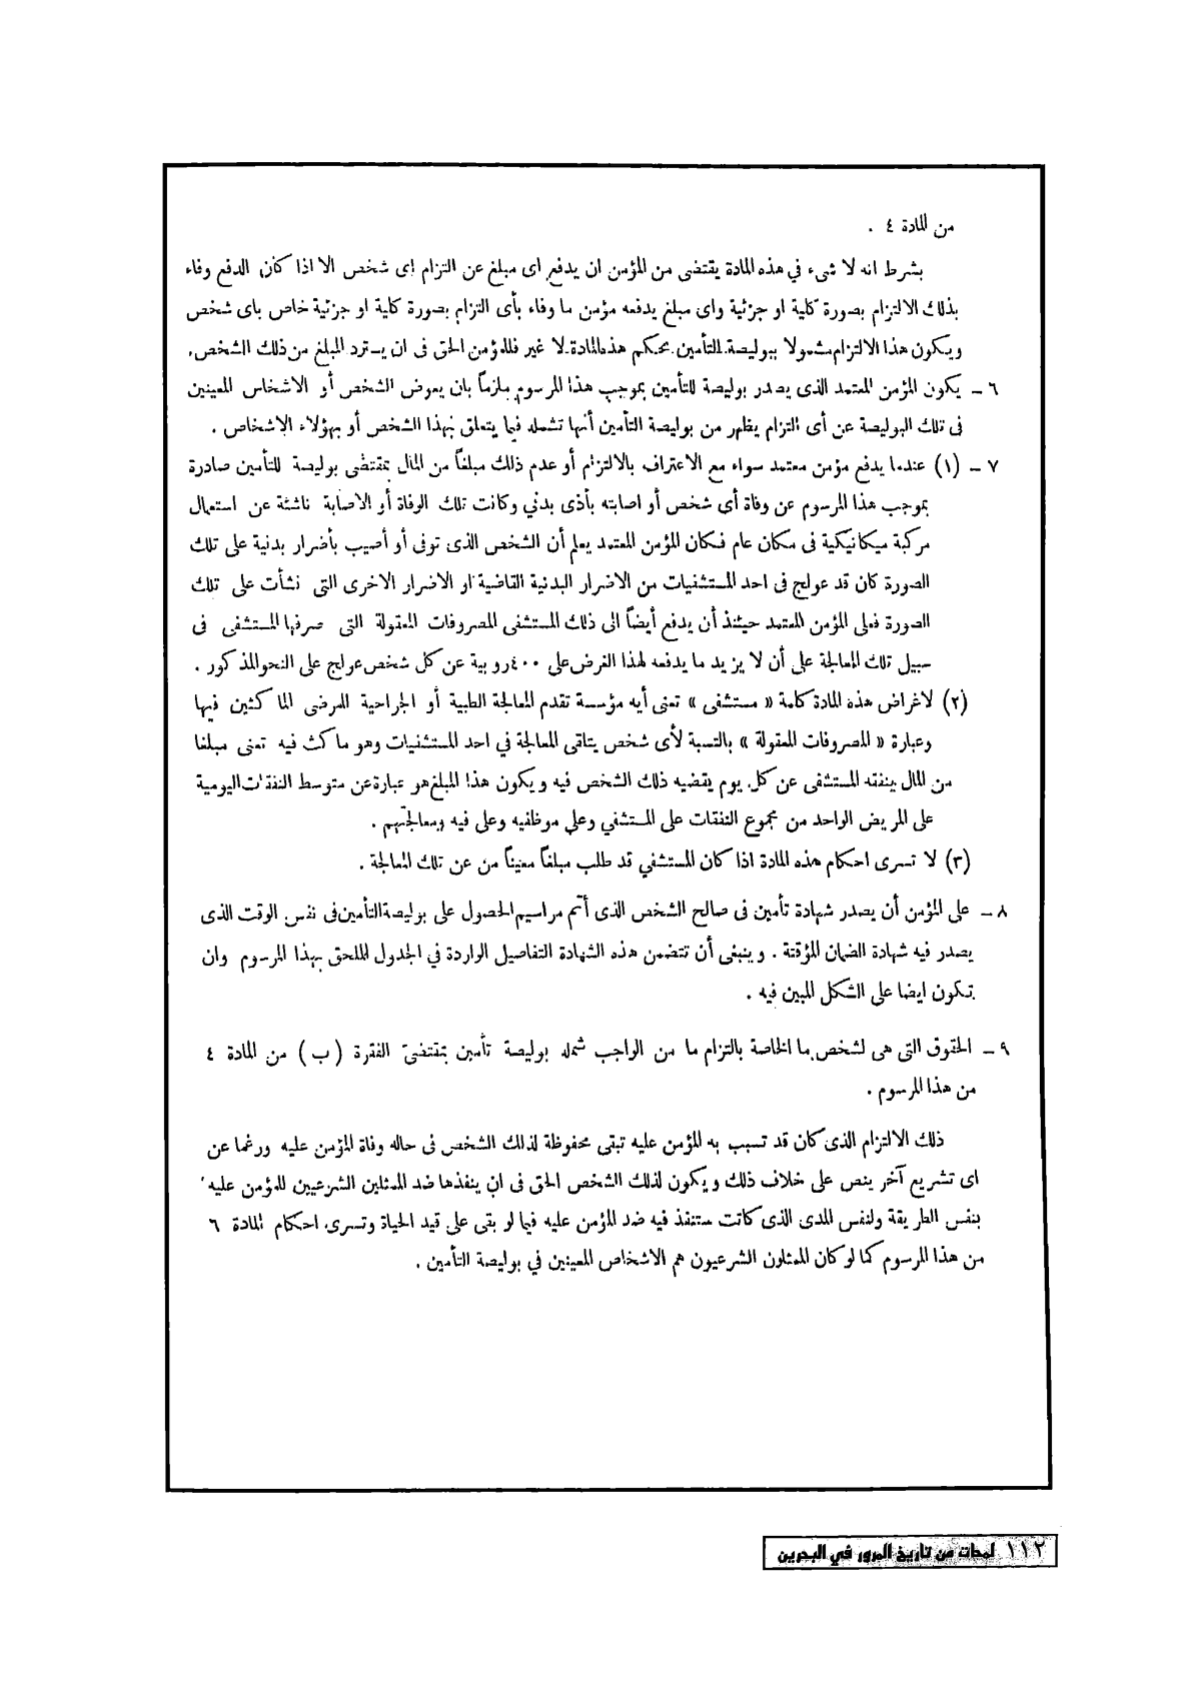 من المادة ٤ .
بشرط انه لا شىء في هذه المادة يقتضى من المؤمن ان يدفع اى مبلغ عن التزام اى شخص الا اذا كان الدفع وفاء
بذلك الالتزام بصورة كلية او جزئية واى مبلغ يدفعه مؤمن ما وفاء بأى التزام بصورة كلية او جزئية خاص باى شخص
ويكون هذا الالتزام مشمولا ببوليصة التأمين بحكم هذه المادة لا غير فللمؤمن الحق فى ان يسترد المبلغ من ذلك الشخص.
٦ – يكون المؤمن المعتمد الذى يصدر بوليصة للتأمين بموجب هذا المرسوم ملزماً بان يعوض الشخص أو الاشخاس المعينين
فى تلك البوليصة عن أى التزام يظهر من بوليصة التأمين أنها تشمله فيما يتعلق بهذا الشخص أو بهؤلاء الاشخاص .
٧ – (١) عندما يدفع مؤمن معتمد سواء مع الاعتراف بالالتزام أو عدم ذلك مبلغاً من المال بمقتضى بوليصة للتأمين صادرة
بموجب هذا المرسوم عن وفاة أى شخص أو اصابته بأذى بدنى وكانت تلك الوفاة أو الاصابة ناشئة عن استعمال
مركبة ميكانيكية فى مكان عام فكان المؤمن المعتمد يعلم أن الشخص الذى توفى أو أصيب بأضرار بدنية على تلك
الصورة كان قد عولج فى احد المستشفيات من الاضرار البدنية القاضية او الاضرار الاخرى التى نشأت على تلك
الصورة فعلى المؤمن المعتمد حينئذ أن يدفع أيضاً الى ذلك المستشفى المصروفات المعقولة التى صرفها المستشفى فى
سبيل تلك المعالجة على أن لا يزيد ما يدفعه لهذا الغرض على ٤٠٠ روبية عن كل شخص عولج على النحو المذكور .
(٢) لاغراض هذه المادة كلمة « مستشفى » تعنى أيه مؤسسة تقدم المعالجة الطبية أو الجراحية للمرضى الماكثين فيها
وعبارة « المصروفات المعقولة » بالنسبة لأى شخص يتلقى المعالجة في احد المستشفيات وهو ماكث فيه تعنى مبلغا
من المال ينفقه المستشفى عن كل يوم يقضيه ذلك الشخص فيه ويكون هذا المبلغ هو عبارة عن متوسط النفقات اليومية
على المريض الواحد من مجموع النفقات على المستشفي وعلى موظفيه وعلى فيه ومعالجتهم .
(٣) لا تسرى احكام هذه المادة اذا كان المستشفي قد طلب مبلغاً معيناً من عن تلك المعالجة .
٨ – على المؤمن أن يصدر شهادة تأمين فى صالح الشخص الذى أتم مراسيم الحصول على بوليصة التأمين فى نفس الوقت الذى
يصدر فيه شهادة الضمان المؤقتة . وينبغى أن تتضمن هذه الشهادة التفاصيل الواردة في الجدول الملحق بهذا المرسوم وان
تكون ايضا على الشكل المبين فيه .
٩ – الحقوق التى هى لشخص ما الخاصة بالتزام ما من الواجب شمله بوليصة تأمين بمقتضى الفقرة (ب) من المادة ٤
من هذا المرسوم .
ذلك الالتزام الذى كان قد تسبب به المؤمن عليه تبقى محفوظة لذلك الشخص فى حاله وفاة المؤمن عليه ورغما عن
اى تشريع آخر ينص على خلاف ذلك ويكون لذلك الشخص الحق فى ان ينفذها ضد الممثلين الشرعيين للمؤمن عليه
بنفس الطريقة ولنفس المدى الذى كانت ستنفذ فيه ضد المؤمن عليه فيما لو بقى على قيد الحياة وتسرى احكام المادة ٦
من هذا المرسوم كما لو كان الممثلون الشرعيون هم الاشخاص المعينين في بوليصة التأمين .
١١٢ لمحات من تاريخ المرور في البحرين